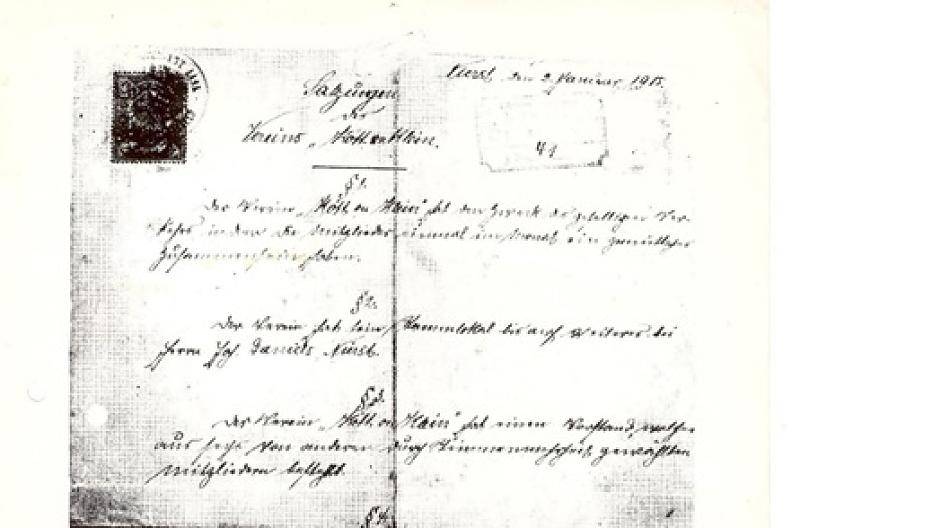 Nierst, den 2. Januar 1915.
Satzungen
des
Vereins „Kött on Klein“.
41
§ 1.
Der Verein „Kött on Klein“ hat den Zweck des geselligen Ver-
kehrs in dem die Mitglieder einmal im Monat ein gemütliches
Zusammensein haben.
§ 2.
Der Verein hat sein Stammlokal bis auf weiteres bei
Herrn Joh. Daniels Nierst.
§ 3.
Der Verein „Kött on Klein“ hat einen Vorstand, welcher
aus sechs von anderen durch Stimmenmehrheit gewählten
Mitgliedern besteht.
§ 4.